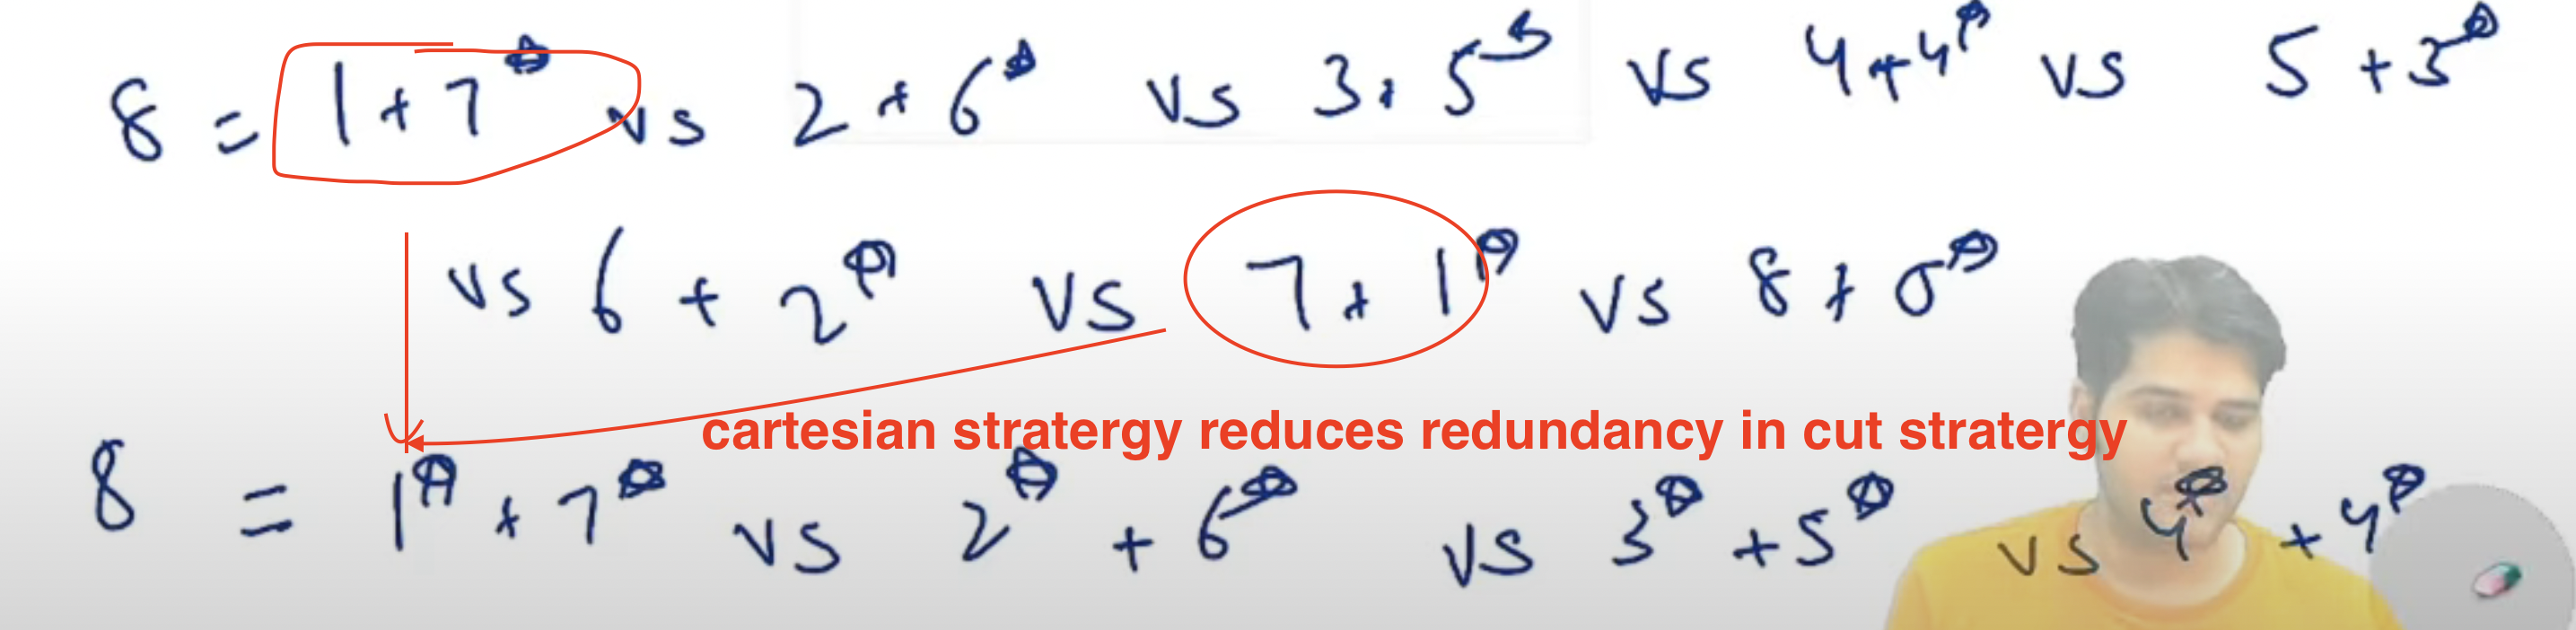 8 = 1 + 7 vs 2 + 6 vs 3 + 5 vs 4 + 4 vs 5 + 3
vs 6 + 2 vs 7 + 1 vs 8 + 0
cartesian stratergy reduces redundancy in cut stratergy
8 = 1 + 7 vs 2 + 6 vs 3 + 5 vs 4 + 4